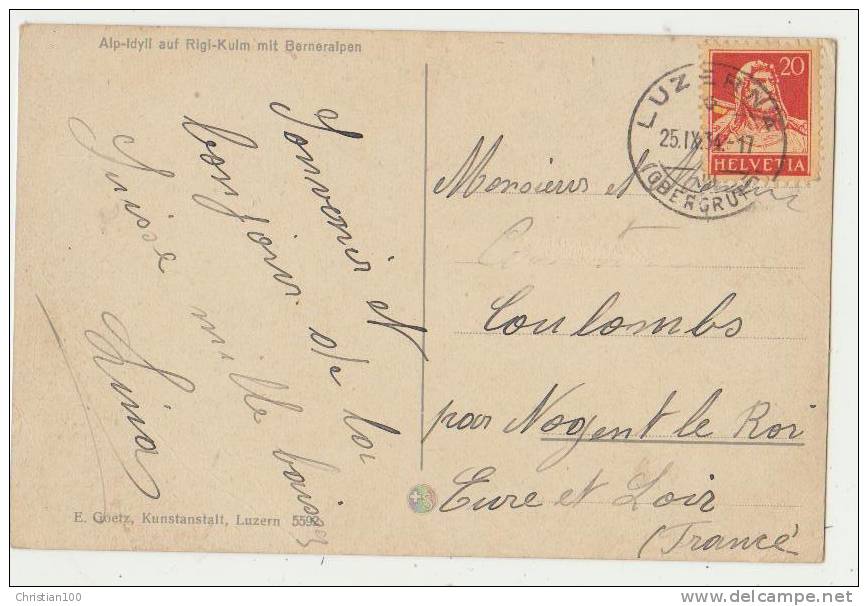 Alp-Idyll auf Rigi-Kulm mit Berneralpen
Souvenir et
bonjour de la
Suisse mille baisers
Lina
E. Goetz, Kunstanstalt, Luzern 5592
LUZERN
25.IX.34.-17
(OBERGRUND)
20
HELVETIA
Monsieur et
Coulombs
par Nogent le Roi
Eure et Loir
(France)
Christian100
www.delcampe.net